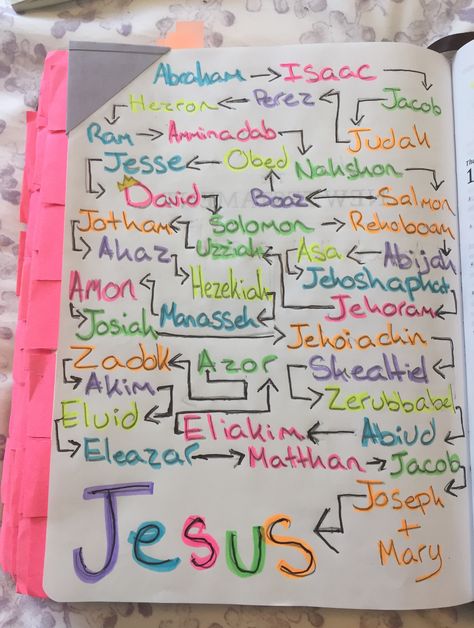 Abraham → Isaac
Hezron ← Perez Jacob
Ram → Amminadab Judah
Jesse ← Obed Nahshon
David Boaz ← Salmon
Jotham ← Solomon → Rehoboam
Ahaz Uzziah Asa ← Abijah
Amon Hezekiah Jehoshaphat
Josiah Manasseh Jehoram
Jehoiachin
Zadok Azor Shealtiel
Akim Zerubbabel
Eluid Eliakim ← Abiud
Eleazar → Matthan → Jacob
Joseph
+
Mary
Jesus